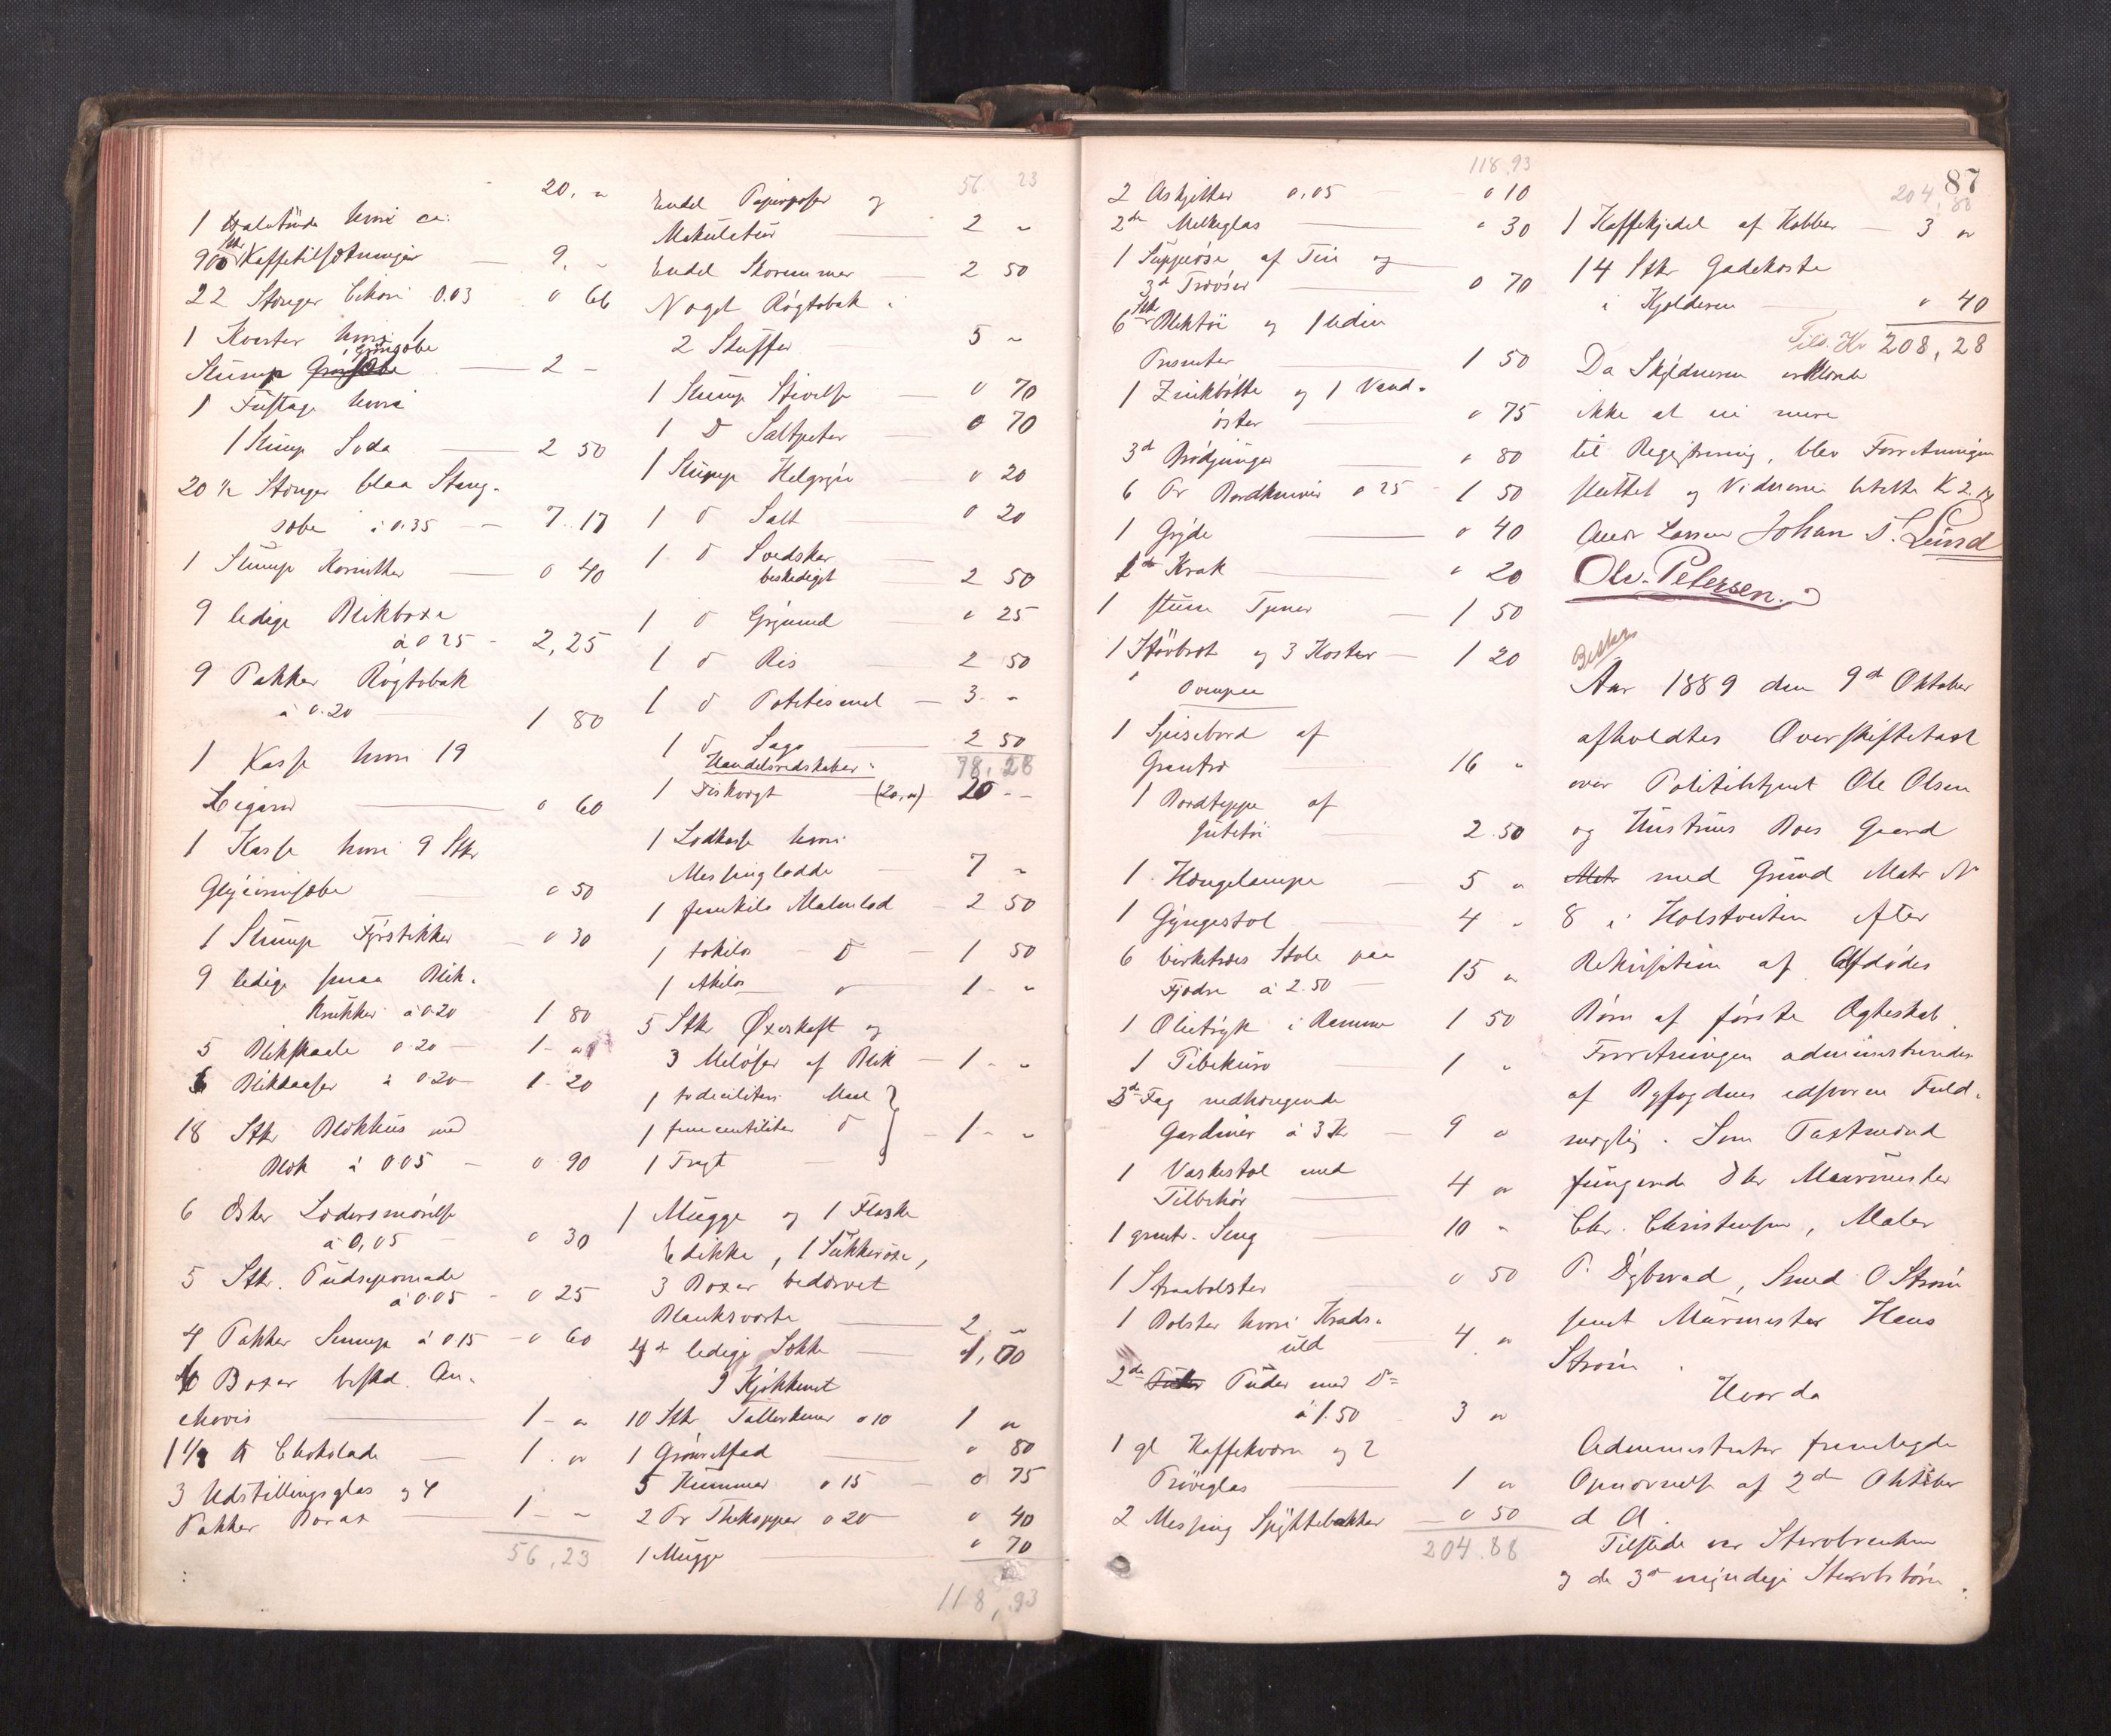 20. "
1 halvtønde hvori ca:
900 Stkr Kaffetilsætninger — 9. "
22 Stænger Cikori 0.03 0 66
1 Kvarter hvori 1
Slump grønsæbe — 2 -
1 Fustage hvori
1 Slump Soda — 2 50
20 ½ Stænger blaa Stang-
sæbe à 0.35 — 7.17
1 Slump Korinther — 0 40
9 ledige Blikboxe
à 0 25 - 2,25
9 Pakker Røgtobak
à 0.20 1 80
1 Kasse hvori 19
Cigarer — 0 60
1 Kasse hvori 9 Stkr
Glycerinsæbe — 0 50
1 Slump Fyrstikker — 0 30
9 ledige smaa Blik-
krukker à 0.20 1 80
5 Blikskaale 0.20 — 1 - "
6 Blikdaaser à 0.20 1. 20
18 Stkr Blækhus med
Blæk à 0 05 — 0 90
6 Æsker Lædersmørelse
à 0,05 — 0 30
5 Stkr. Pudsepomade
à 0.05 - 0 25
4 Pakker Sennep à 0 15 - 0 60
6 Boxer beskad. An-
chovis — 1 - "
1 ½ ℔ Chokolade — 1. "
3 Udstillingsglas og 4
Pakker Borax — 1 - "
56,23
56. 23
Endel Papirposer og
Makulatur — 2 "
Endel Storummer — 2 50
Noget Røgtobak i
2 Skuffer — 5 "
1 Slump Stivelse — 0 70
1 D Saltpeter — 0 70
1 Slump Helgryn — 0 20
1 D Salt — 0 20
1 D Svedsker
beskadiget 2 50
1 D Grynmel 0 25
1 D Ris 2 50
1 D Potetesmel — 3 - "
1 D Sago — 2 50
Handelsredskaber: 78,28
1 Diskvægt (20,") 20 - -
1 Lodkasse hvori
Messinglodde — 7 "
1 femkilo Malmlod - 2 50
1 tokilos D - 1 50
1 1kilos D 1 - "
5 Stkr Øxeskaft og
3 Meløser af Blik — 1 - "
1 todeciliters Maal
1 femcentiliter D — 1 - "
1 Tragt
1 Mugge og 1 Flaske
Edikke, 1 Sukkerøse,
3 Boxer bedærvet
Blanksværte — 2 "
4 d ledige Sække — 1,00
I Kjøkkenet
10 Stkr Tallerkener 0 10 1 "
1 Grønsetfad — 0 80
5 Kummer 0 15 — 0 75
2 Pr Thekopper 0 20 0 40
1 Mugge — 0 70
118,93
118,93
2 Askjetter 0,05 - 0 10
2 de Melkeglas — 0 30
1 Suppeøse af Tin og
3 d Træøser — 0 70
6 Stkr Bliktøi og 1 liden
Presenter — 1 50
1 Zinkbøtte og 1 Vand-
øser — 0 75
3 d Brødjunger — 0 80
6 Pr Bordkniver 0 25 - 1 50
1 Gryde — 0 40
1 do Krak — 0 20
1 stum Tjener — 1 50
1 Støvbret og 3 Koster — 1 20
Ovenpaa
1 Spisebord af
Grantræ — 16 "
1 Bordteppe af
Jutetøi — 2.50
1 Hængelampe — 5 "
1 Gyngestol — 4 "
6 birketræes Stole paa
Fjædre à 2.50 — 15 "
1 Olietryk i Ramme 1 50
1 Pibekurv — 1 "
3 de Fag nedhængende
Gardiner à 3 Kr — 9 "
1 Vaskestol med
Tilbehør — 4 "
1 grantr. Seng — 10 "
1 Straabolster — 0 50
1 Bolster hvori Krads-
uld — 4 "
2 de Puder med D=
à 1.50 3 "
1 gl Kaffekværn og 2
Prøveglas — 1 "
2 Messing Spyttebakker — 0 50
204.88
87
204,88
1 Kaffekjedel af Kobber — 3 "
14 Stkr Gadekoste
i Kjelderen — 0 40
Tils. Kr 208,28
Da Skyldneren erklærede
ikke at eie mere
til Registrering, blev Forretningen
sluttet og Vidnerne betalte Kr 2.14
Andr Larsen Johan S. Lund
Olv. Petersen.
Aar 1889 den 9 de Oktober
afholdtes Overskiftetaxt
over Politibetjent Ole Olsen
og Hustrues Boes Gaard
med Grund Matr N°
8 i Holstveiten efter
Rekvisition af Afdødes
Børn af første Ægteskab.
Forretningen administreredes
af Byfogdens edsvorne Fuld-
mægtig. Som Taxtmænd
fungerede D'Hr Murmester
Chr. Christensen, Maler
P. Dybvad, Smed O Strøm
samt Murmester Hans
Strøm.
Hvor da
Administrator fremlagde
Opnævnelse af 2 den Oktober
d A.
Tilstede var Stervboenken
og de 3 de myndige Stervbobørn.